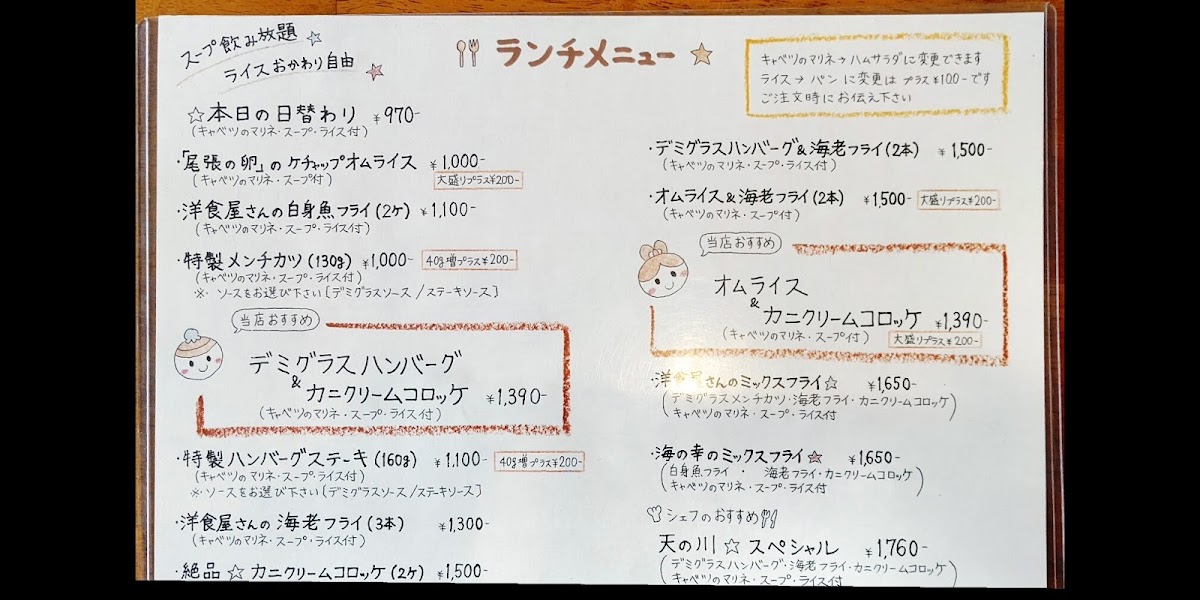 スープ飲み放題
ライスおかわり自由
ランチメニュー
キャベツのマリネ→ハムサラダに変更できます
ライス→パンに変更はプラス¥100-です
ご注文時にお伝え下さい
☆本日の日替わり ¥970-
(キャベツのマリネ・スープ・ライス付)
・「尾張の卵」のケチャップオムライス ¥1,000-
(キャベツのマリネ・スープ付)
大盛りプラス¥200-
・洋食屋さんの白身魚フライ(2ケ) ¥1,100-
(キャベツのマリネ・スープ・ライス付)
・特製メンチカツ(130g) ¥1,000- 40g増プラス¥200-
(キャベツのマリネ・スープ・ライス付)
※・ソースをお選び下さい〔デミグラスソース/ステーキソース〕
当店おすすめ
デミグラスハンバーグ
&
カニクリームコロッケ ¥1,390-
(キャベツのマリネ・スープ・ライス付)
・特製ハンバーグステーキ(160g) ¥1,100- 40g増プラス¥200-
(キャベツのマリネ・スープ・ライス付)
※・ソースをお選び下さい〔デミグラスソース/ステーキソース〕
・洋食屋さんの海老フライ(3本) ¥1,300-
(キャベツのマリネ・スープ・ライス付)
・絶品☆カニクリームコロッケ(2ケ) ¥1,500-
・デミグラスハンバーグ&海老フライ(2本) ¥1,500-
(キャベツのマリネ・スープ・ライス付)
・オムライス&海老フライ(2本) ¥1,500- 大盛りプラス¥200-
(キャベツのマリネ・スープ付)
当店おすすめ
オムライス
&
カニクリームコロッケ ¥1,390-
(キャベツのマリネ・スープ付) 大盛りプラス¥200-
・洋食屋さんのミックスフライ☆ ¥1,650-
(デミグラスメンチカツ・海老フライ・カニクリームコロッケ
キャベツのマリネ・スープ・ライス付)
・海の幸のミックスフライ☆ ¥1,650-
(白身魚フライ・海老フライ・カニクリームコロッケ
キャベツのマリネ・スープ・ライス付)
シェフのおすすめ
天の川☆スペシャル ¥1,760-
(デミグラスハンバーグ・海老フライ・カニクリームコロッケ
キャベツのマリネ・スープ・ライス付)